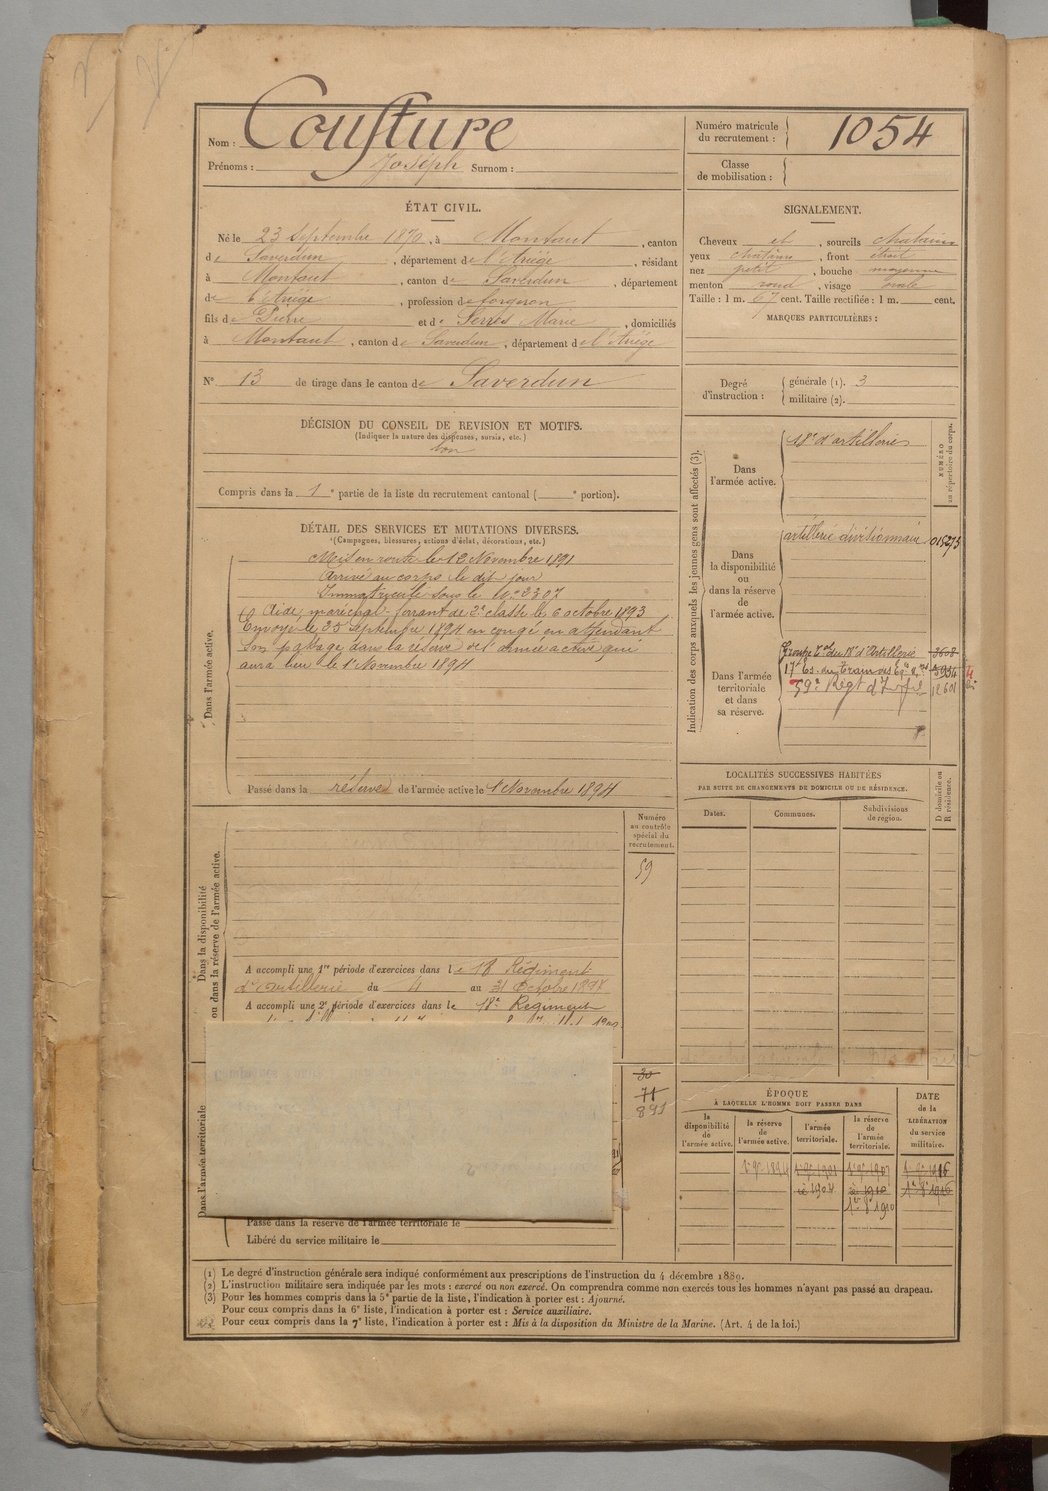 Nom : Cousture
Prénoms : Joseph Surnom :
Numéro matricule du recrutement : 1054
Classe de mobilisation :
ÉTAT CIVIL.
Né le 23 septembre 1870, à Montaut, canton
de Saverdun, département de l'Ariège, résidant
à Montaut, canton de Saverdun, département
de l'Ariège, profession de forgeron
fils de Pierre et de Serres Marie, domiciliés
à Montaut, canton de Saverdun, département de l'Ariège
N° 13 de tirage dans le canton de Saverdun
SIGNALEMENT.
Cheveux et, sourcils chatains
yeux chatains, front étroit
nez petit, bouche moyenne
menton rond, visage ovale
Taille : 1 m. 67 cent. Taille rectifiée : 1 m. cent.
MARQUES PARTICULIÈRES :
Degré d'instruction :
générale (1). 3
militaire (2).
DÉCISION DU CONSEIL DE REVISION ET MOTIFS.
(Indiquer la nature des dispenses, sursis, etc.)
bon
Compris dans la 1e partie de la liste du recrutement cantonal ( e portion).
DÉTAIL DES SERVICES ET MUTATIONS DIVERSES.
(Campagnes, blessures, actions d'éclat, décorations, etc.)
Dans l'armée active.
Mis en route le 12 Novembre 1891
Arrivé au corps le dit jour
Immatriculé sous le N° 3307
Aide maréchal-ferrant de 2e classe le 6 octobre 1893
Envoyé le 25 septembre 1894 en congé en attendant
son passage dans la réserve de l'armée active qui
aura lieu le 1 Novembre 1894
Passé dans la réserve de l'armée active le 1 Novembre 1894
Indication des corps auxquels les jeunes gens sont affectés (3).
NUMÉRO au répertoire du corps.
Dans l'armée active.
18e d'artillerie
Dans la disponibilité ou dans la réserve de l'armée active.
artillerie divisionnaire 015273
Dans l'armée territoriale et dans sa réserve.
Groupe Tal du 18e d'Artillerie 3608
17e Es. du Train des Eq. 3934
59e Régt d'Inf.
LOCALITÉS SUCCESSIVES HABITÉES
PAR SUITE DE CHANGEMENTS DE DOMICILE OU DE RÉSIDENCE.
Dates. Communes. Subdivisions de région. D domicile ou R résidence.
Dans la disponibilité ou dans la réserve de l'armée active.
Numéro au contrôle spécial du recrutement.
59
A accompli une 1re période d'exercices dans le 18 Régiment
d'artillerie du 4 au 31 Octobre 1897
A accompli une 2e période d'exercices dans le 18e Régiment
30
71
891
Dans l'armée territoriale
Passé dans la réserve de l'armée territoriale le
Libéré du service militaire le
ÉPOQUE
À LAQUELLE L'HOMME DOIT PASSER DANS
la disponibilité de l'armée active. la réserve de l'armée active. l'armée territoriale. la réserve de l'armée territoriale.
DATE de la LIBÉRATION du service militaire.
1er 9e 1894 1er 9e 1901 1er 9e 1907 1er 9e 1916
1904 1910 1er 8e 1916
1er 8e 1910
(1) Le degré d'instruction générale sera indiqué conformément aux prescriptions de l'instruction du 4 décembre 1889.
(2) L'instruction militaire sera indiquée par les mots : exercé ou non exercé. On comprendra comme non exercés tous les hommes n'ayant pas passé au drapeau.
(3) Pour les hommes compris dans la 5e partie de la liste, l'indication à porter est : Ajourné.
Pour ceux compris dans la 6e liste, l'indication à porter est : Service auxiliaire.
Pour ceux compris dans la 7e liste, l'indication à porter est : Mis à la disposition du Ministre de la Marine. (Art. 4 de la loi.)